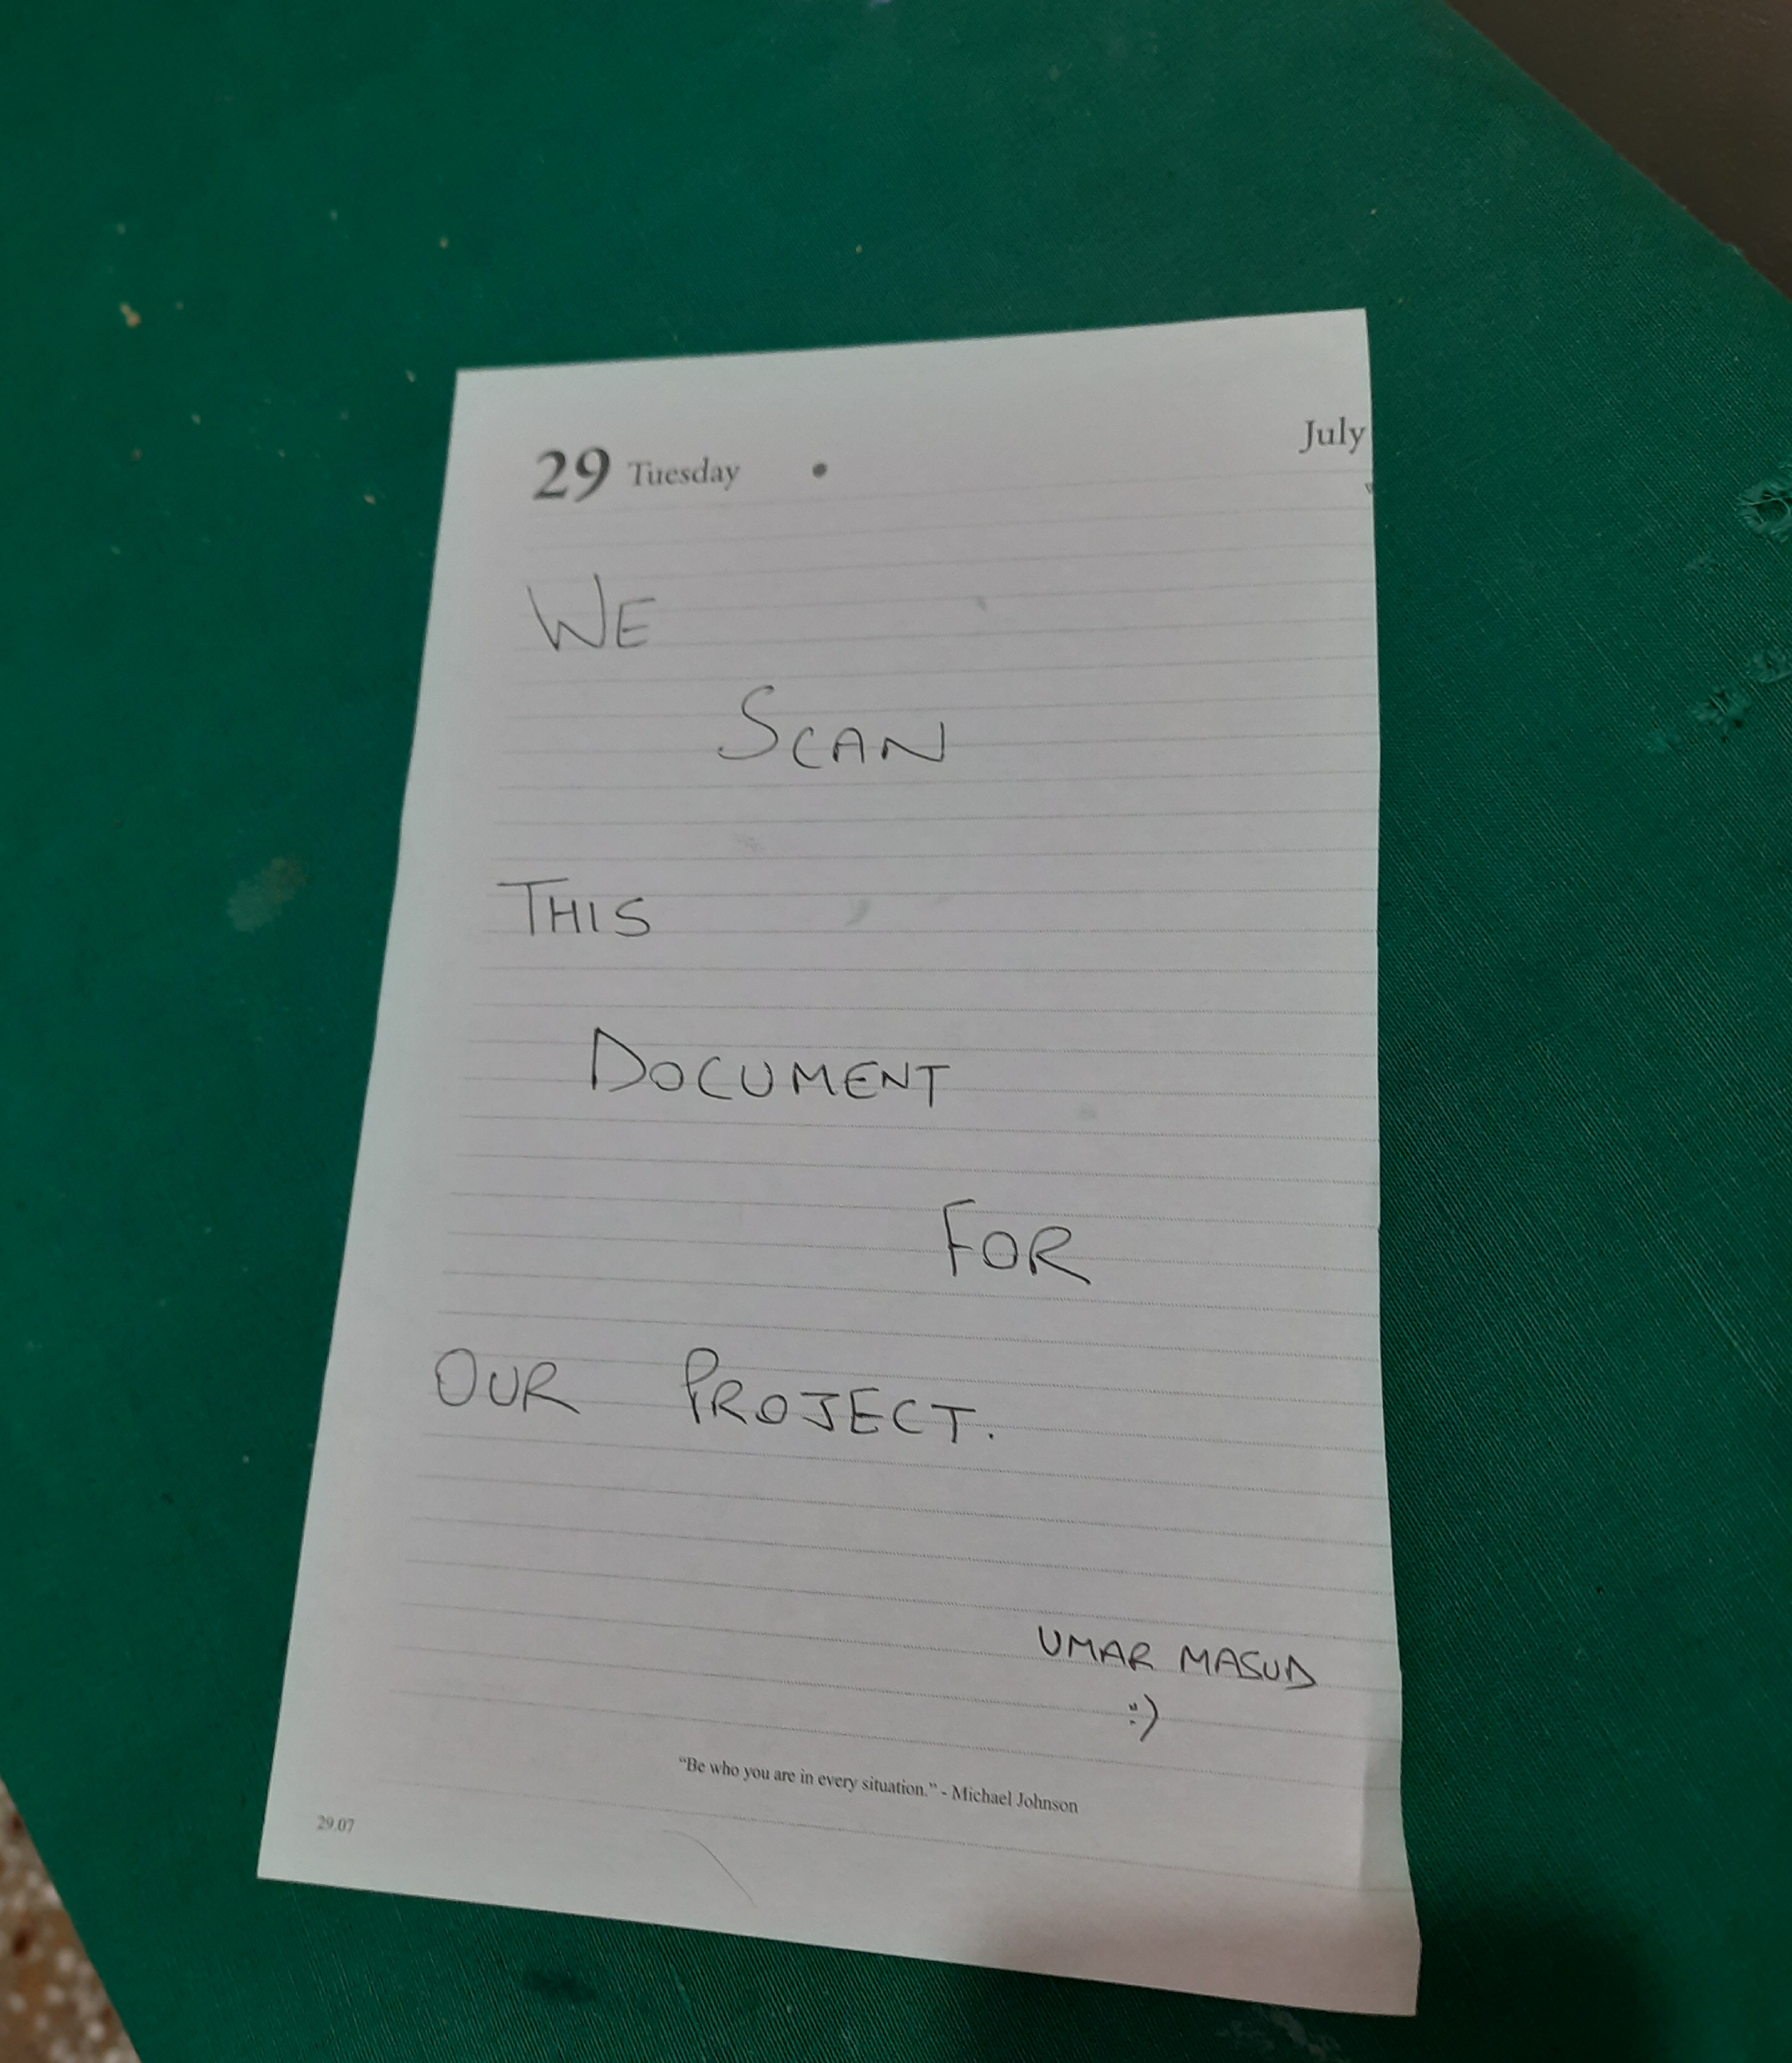 29 Tuesday • July
WE
SCAN
THIS
DOCUMENT
FOR
OUR PROJECT.
UMAR MASUD
:)
“Be who you are in every situation.” - Michael Johnson
29.07